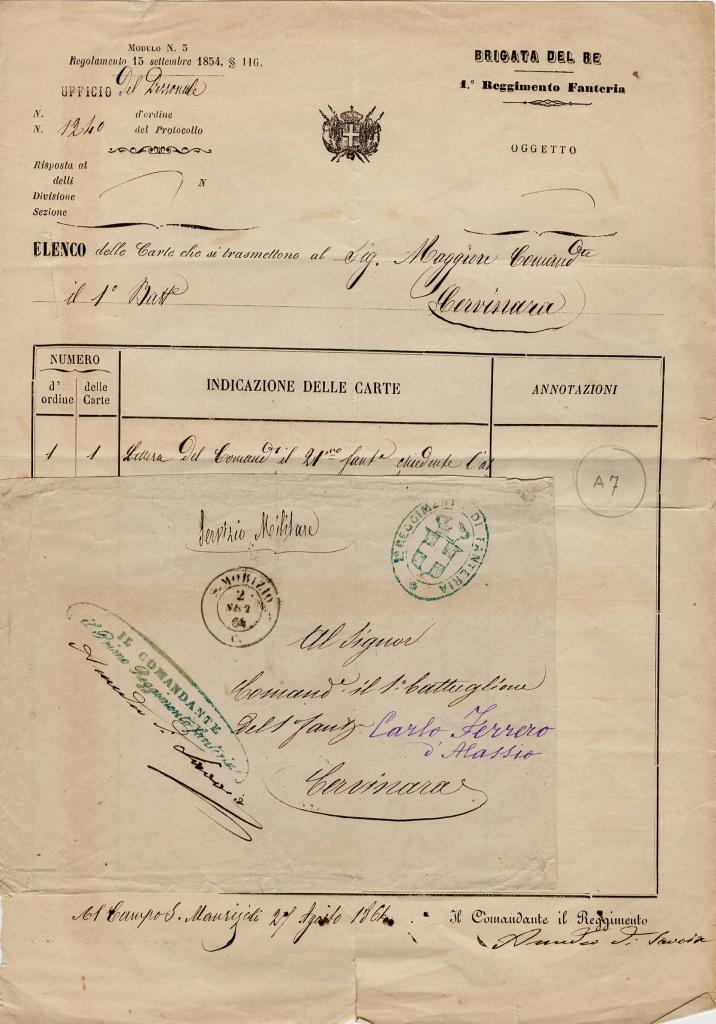 Modulo N. 5
Regolamento 15 settembre 1854, § 116.
UFFICIO del Personale
N. d'ordine
N. 1240 del Protocollo
Risposta al
delli
Divisione
Sezione
N
BRIGATA DEL RE
1.° Reggimento Fanteria
OGGETTO
ELENCO delle Carte che si trasmettono al Sig. Maggiore Comand.te
il 1° Batt.e
Cervinara
NUMERO
d'ordine
delle Carte
INDICAZIONE DELLE CARTE
ANNOTAZIONI
1 1 Lettera del Comand.e il 21mo fant.a chiedente l'at
A7
Servizio Militare
1° REGGIMENTO DI FANTERIA
S. MORIZIO
2
64
C.
IL COMANDANTE
il Primo Reggimento Fanteria
Amedeo di Savoia
Al Signor
Comand.e il 1° battaglione
del 1 fant.a Carlo Ferrero
d'Alassio
Cervinara
Al Campo S. Maurizio li 27 Agosto 1864
Il Comandante il Reggimento
Amedeo di Savoia